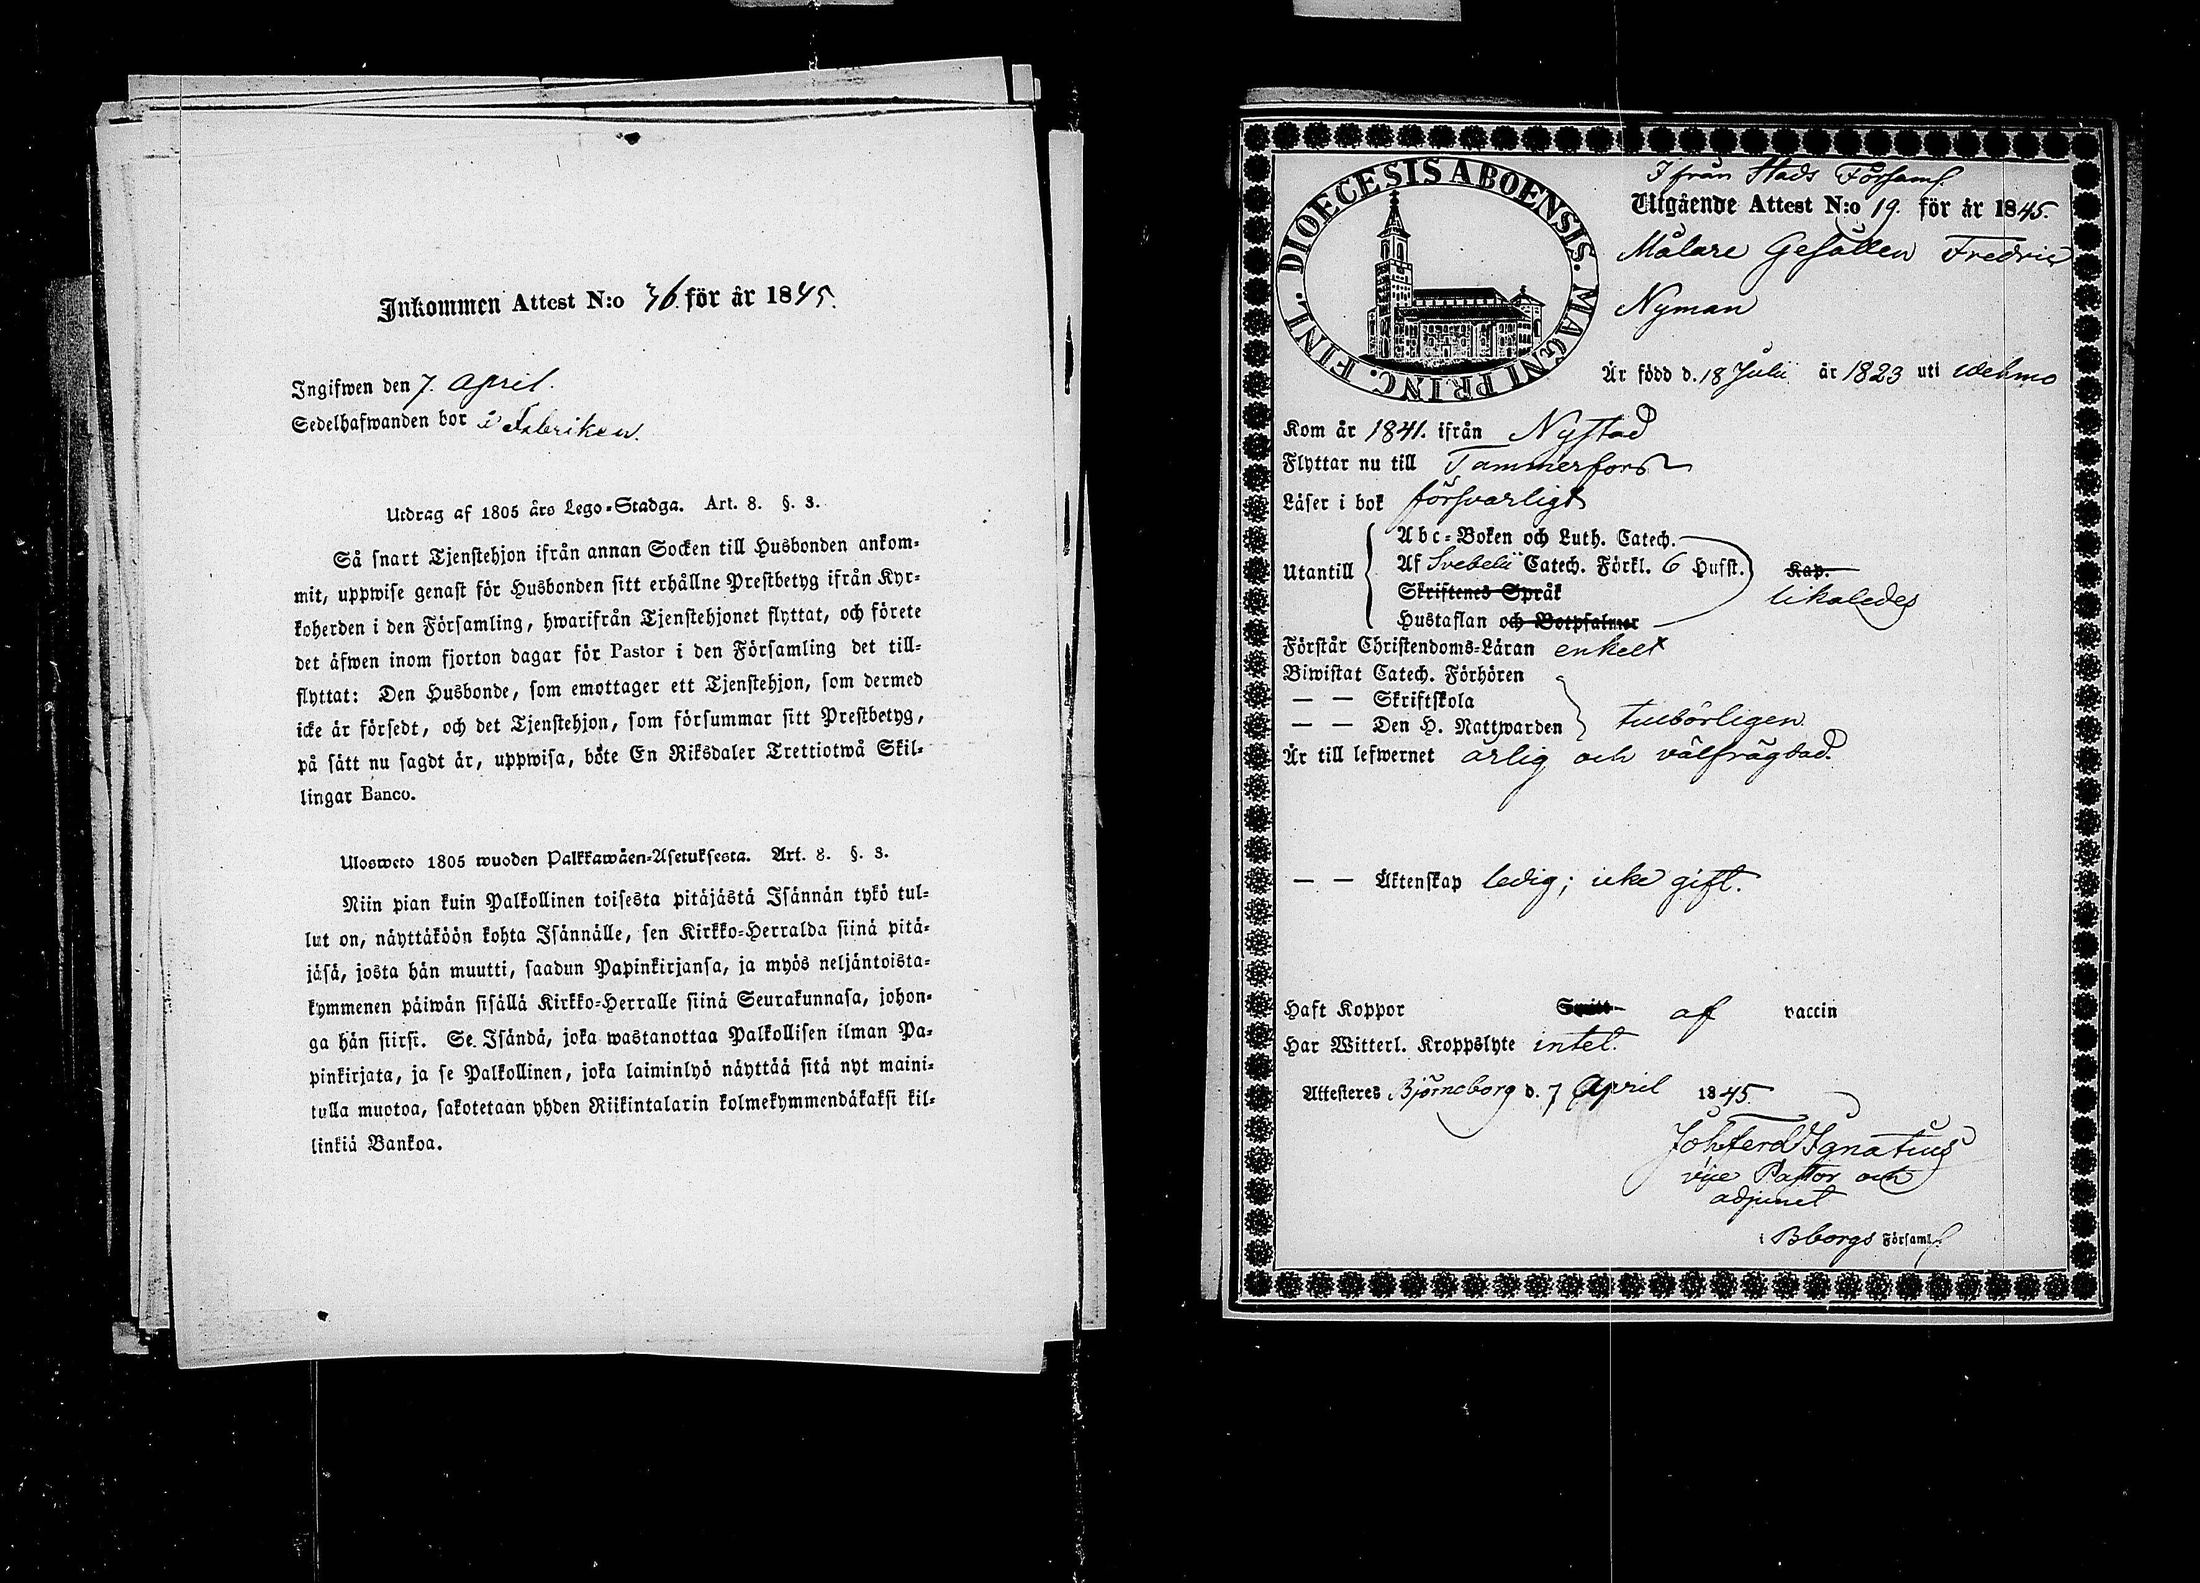 Inkommen Attest N:o 36 för år 1845.
Ingifwen den 7. April.
Sedelhafwanden bor i Fabriken.
Utdrag af 1805 års Lego-Stadga. Art. 8. §. 3.
Så snart Tjenstehjon ifrån annan Socken till Husbonden ankom-
mit, uppwise genast för Husbonden sitt erhållne Prestbetyg ifrån Kyr-
koherden i den Församling, hwarifrån Tjenstehjonet flyttat, och förete
det äfwen inom fjorton dagar för Pastor i den Församling det till-
flyttat: Den Husbonde, som emottager ett Tjenstehjon, som dermed
icke är försedt, och det Tjenstehjon, som försummar sitt Prestbetyg,
på sätt nu sagdt är, uppwisa, böte En Riksdaler Trettiotwå Skil-
lingar Banco.
Ulosweto 1805 wuoden Palkkawäen-Asetuksesta. Art. 8. §. 3.
Niin pian kuin Palkollinen toisesta pitäjästä Isännän tykö tul-
lut on, näyttäköön kohta Isännälle, sen Kirkko-Herralda siinä pitä-
jäsä, josta hän muutti, saadun Papinkirjansa, ja myös neljäntoista-
kymmenen päiwän sisällä Kirkko-Herralle siinä Seurakunnasa, johon-
ga hän siirsi. Se Isändä, joka wastanottaa Palkollisen ilman Pa-
pinkirjata, ja se Palkollinen, joka laiminlyö näyttää sitä nyt maini-
tulla muotoa, sakotetaan yhden Riikintalarin kolmekymmendäkaksi kil-
linkiä Bankoa.
DIOECESIS ABOENSIS. MAGNI PRINC. FINL.
Ifrån Stads Församl.
Utgående Attest N:o 19. för år 1845.
Målare Gesällen Fredric
Nyman
Är född d. 18 Julii år 1823 uti Wehmo
Kom år 1841. ifrån Nystad
Flyttar nu till Tammerfors
Läser i bok försvarligt
Utantill
Abc-Boken och Luth. Catech.
Af Svebelii Catech. Förkl. 6 Hufst. Kap.
Skriftenes Språk likaledes
Hustaflan och Botpsalmer
Förstår Christendoms-Läran enkelt
Biwistat Catech. Förhören
— — Skriftskola
— — Den H. Nattwarden tillbörligen
Är till lefwernet ärlig och välfrägdad.
— — Äktenskap ledig; icke gift.
Haft Koppor Smitt af vaccin
Har Witterl. Kroppslyte intet.
Attesteres Björneborg d. 7 April 1845.
Joh Ferd Ignatius
vice Pastor och
adjunct
i Bborgs Församl.